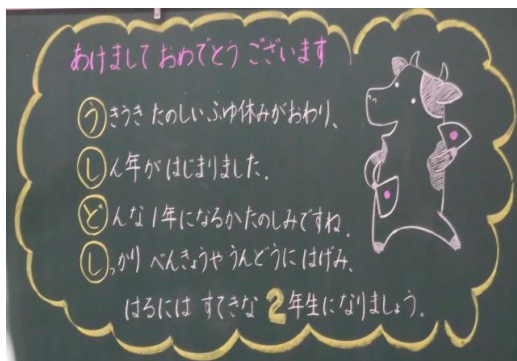 あけましておめでとうございます
うきうきたのしいふゆ休みがおわり、
しん年がはじまりました。
どんな1年になるかたのしみですね。
しっかりべんきょうやうんどうにはげみ、
はるにはすてきな2年生になりましょう。